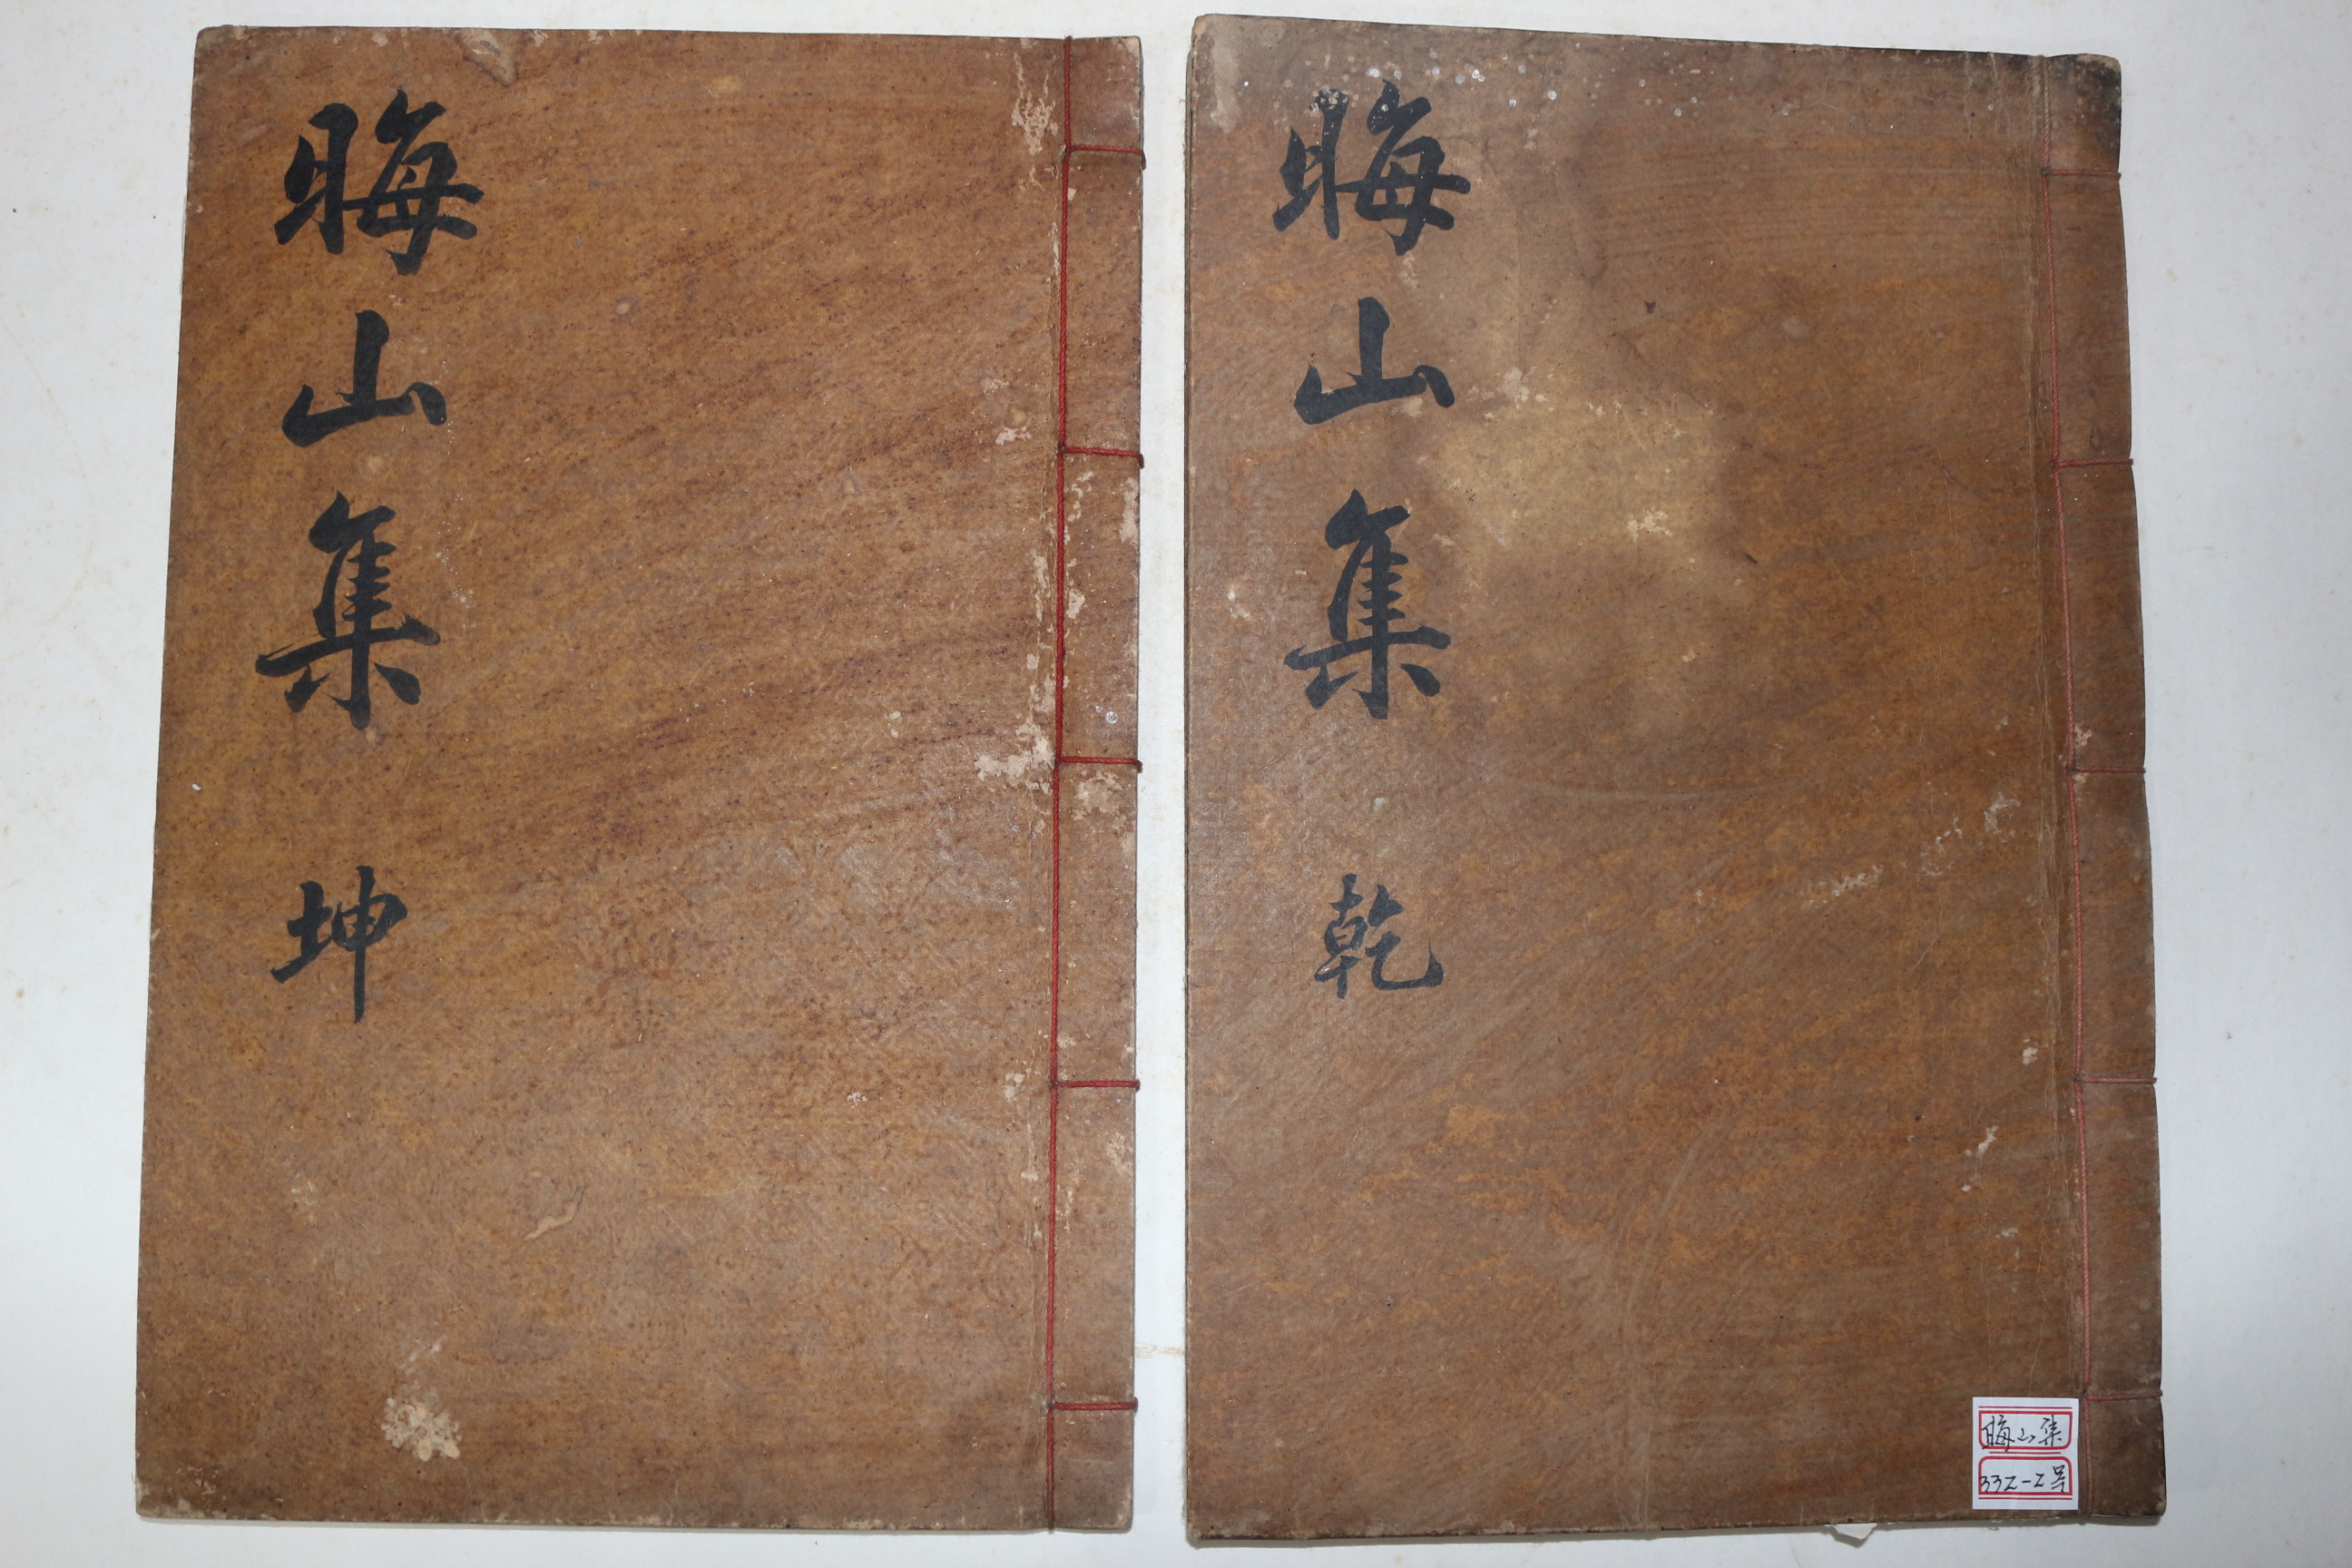 晦山集 乾
晦山集 坤
晦山集
332-2号